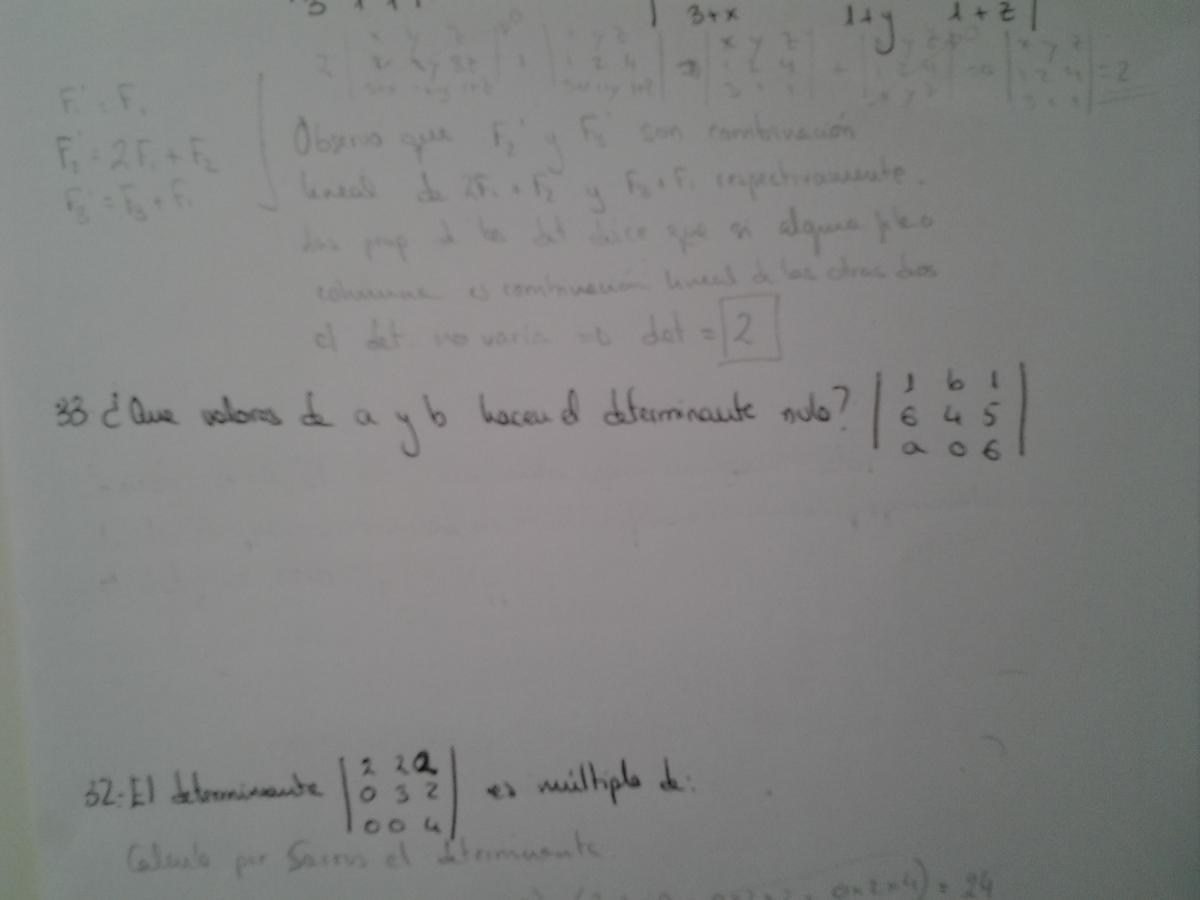 3 1 1 | 3+x 1+y 1+z |
2 | x y z
F₁' = F₁
F₂' = 2F₁ + F₂
F₃' = F₃ + F₁
Observo que F₂' y F₃' son combinación
lineal de 2F₁ + F₂ y F₃ + F₁ respectivamente.
prop d los det dice que si alguna fila o
columna es combinación lineal de las otras dos
el det no varia => det = 2
33 ¿Que valores de a y b hacen el determinante nulo? | 1 b 1 |
| 6 4 5 |
| a 0 6 |
32.- El determinante | 2 2 2 | es múltiplo de:
| 0 3 2 |
| 0 0 4 |
Calculo por Sarrus el determinante
0×2×4) = 24